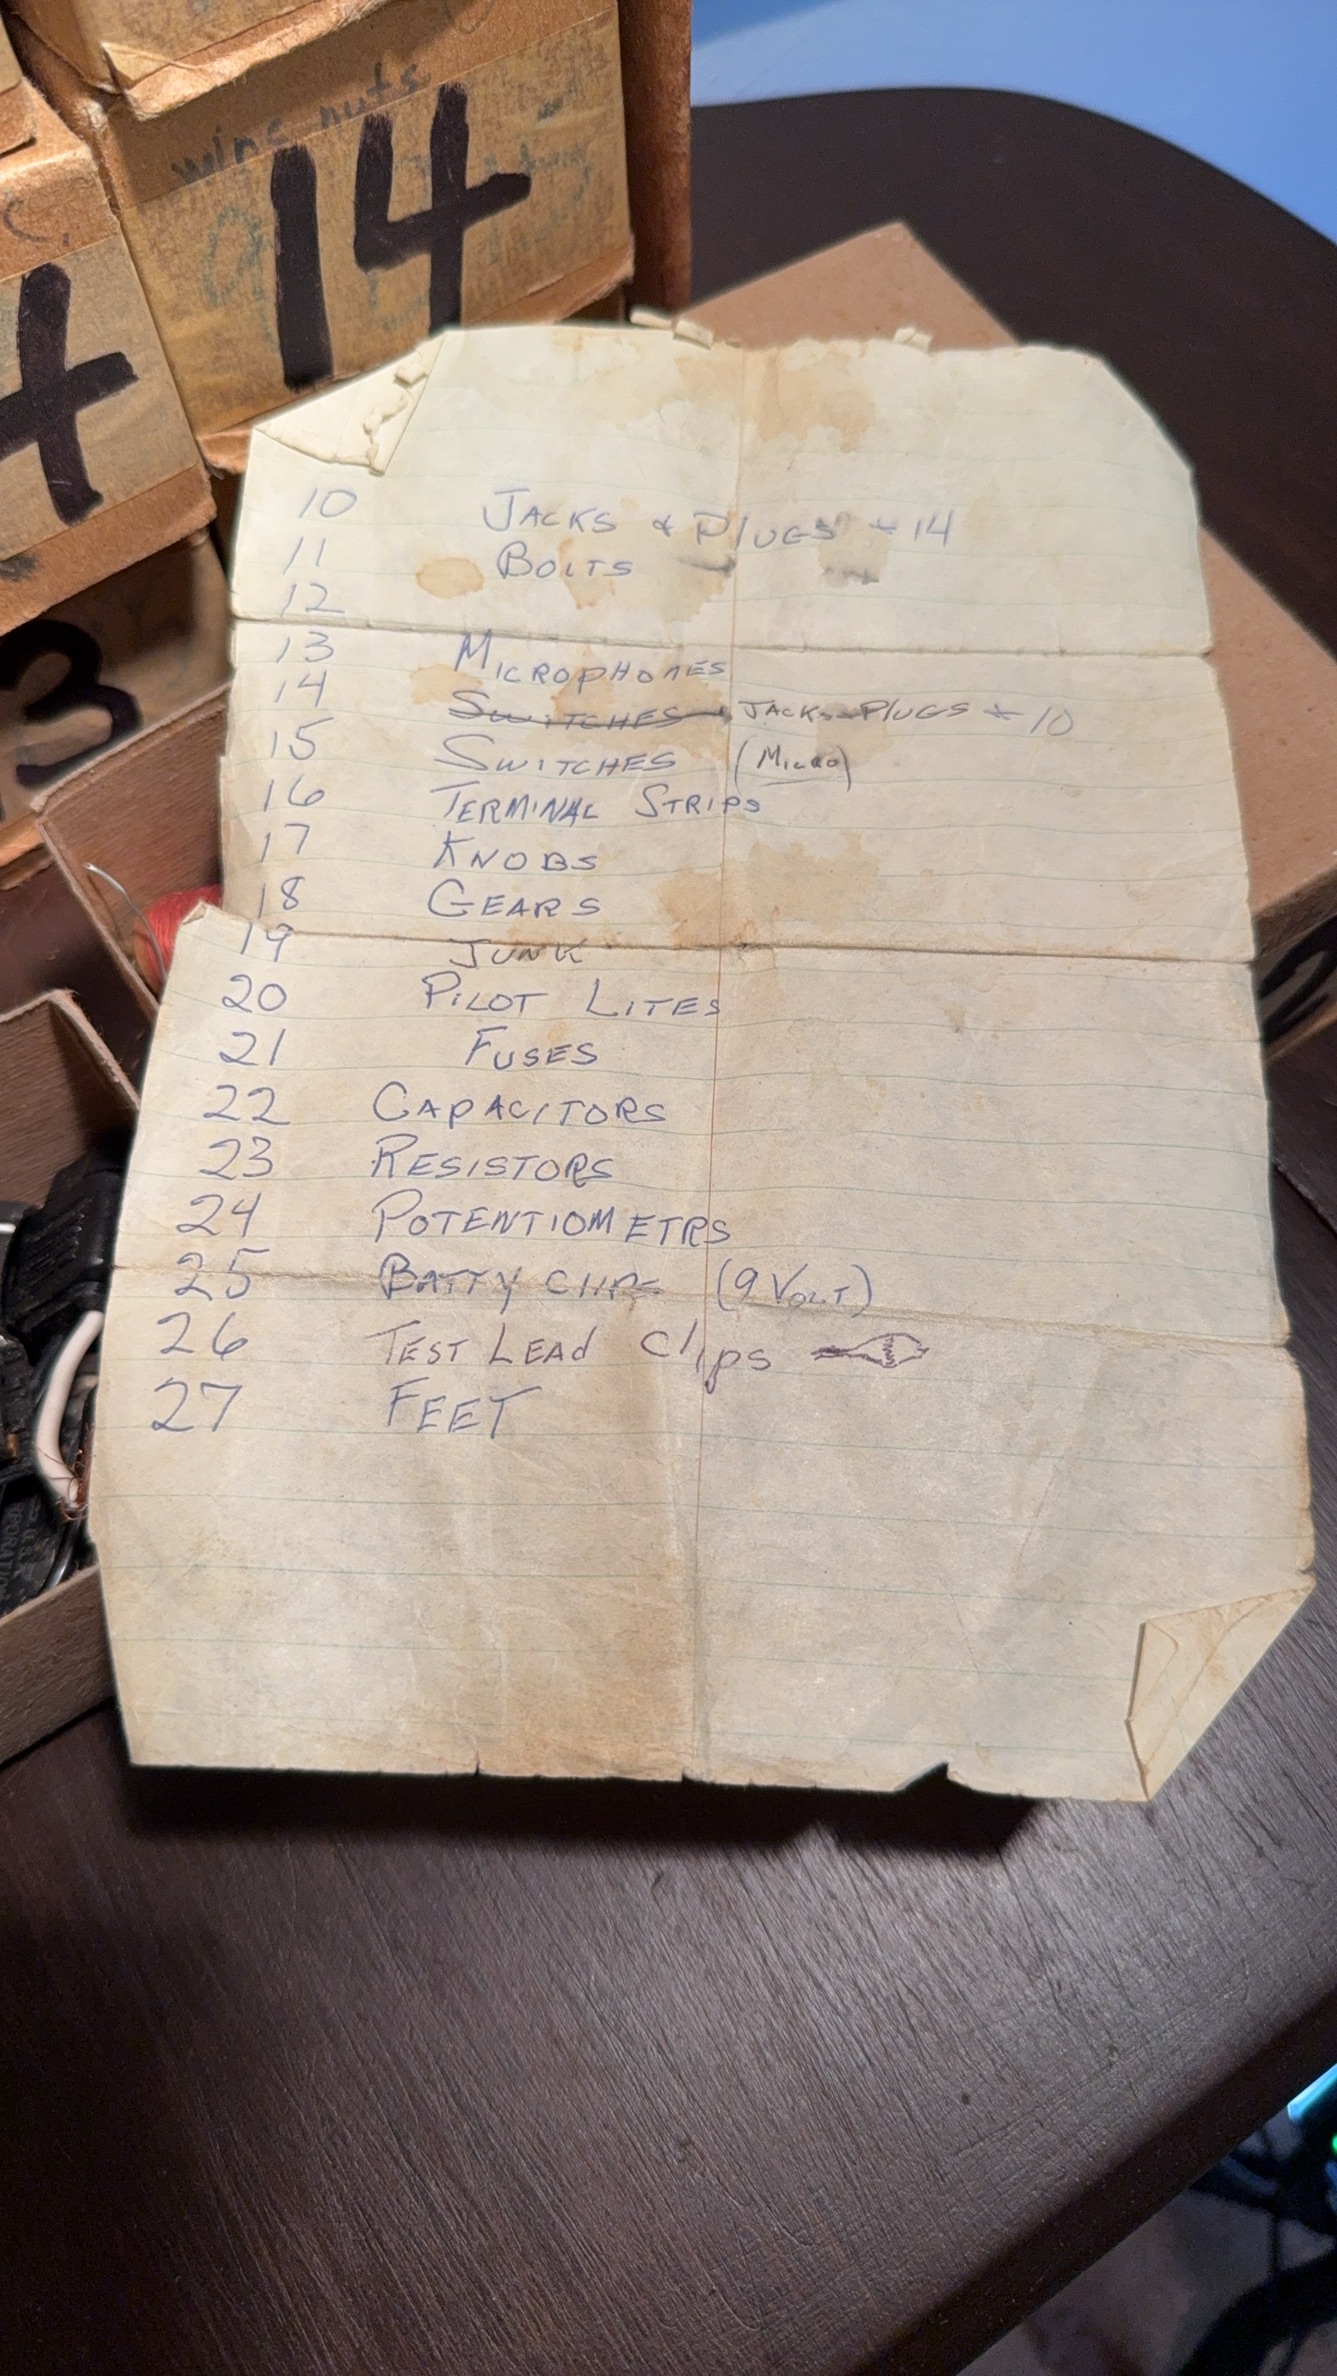 wing nuts
14
4
3
10 JACKS & PLUGS + 14
11 BOLTS
12
13 MICROPHONES
14 SWITCHES JACKS PLUGS + 10
15 SWITCHES (MICRO)
16 TERMINAL STRIPS
17 KNOBS
18 GEARS
19 JUNK
20 PILOT LITES
21 FUSES
22 CAPACITORS
23 RESISTORS
24 POTENTIOMETRS
25 BATTY CLIPS (9 VOLT)
26 TEST LEAD Clips
27 FEET